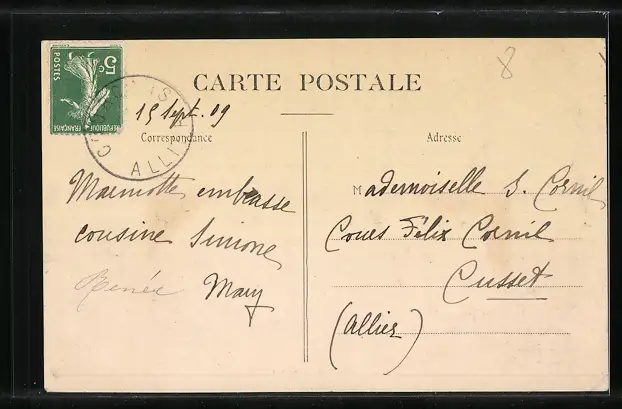 8
5c
POSTES
REPUBLIQUE FRANÇAISE
CARTE POSTALE
15 Sept. 09
ALLI
Correspondance
Adresse
Marmotte embrasse
cousine Simone
Renée Mary
Mademoiselle S. Cornil
Cours Félix Cornil
Cusset
(Allier)